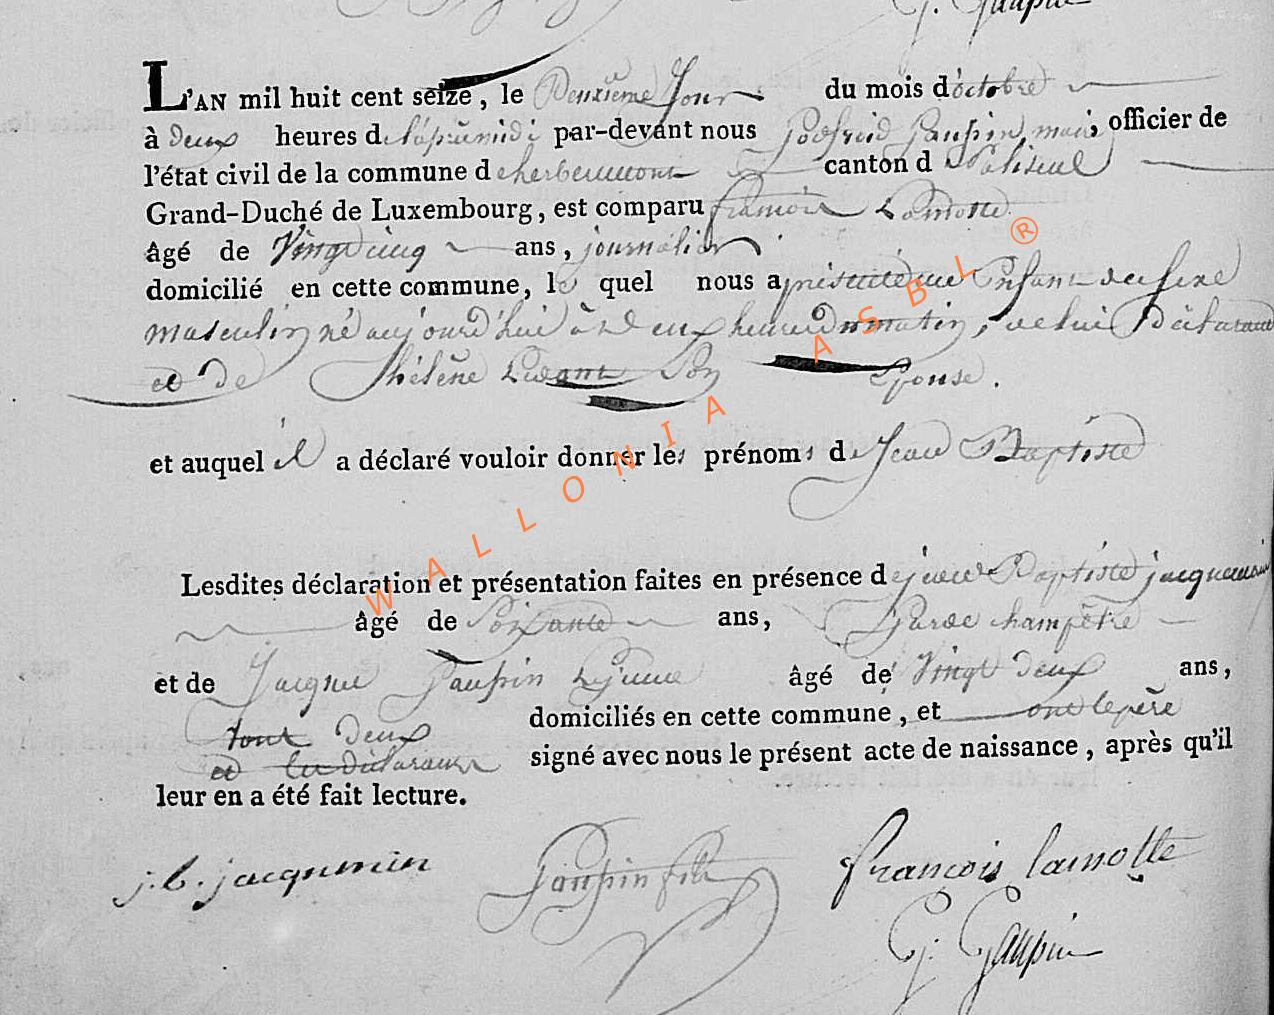 G. Gaupin
L'AN mil huit cent seize, le Deuxième Jour du mois d'octobre
à deux heures de l'aprèmidi par-devant nous Godfroid Gaupin, maire officier de
l'état civil de la commune d'herbeumont canton de Paliseul
Grand-Duché de Luxembourg, est comparu francois Lamotte
âgé de Vingt cinq ans, journalier
domicilié en cette commune, le quel nous a présenté un Enfant du sexe
masculin né aujourd'hui à Deux heures du matin, de lui Déclarant
et de hélène son Epouse.
et auquel il a déclaré vouloir donner les prénoms de Jean Baptiste
Lesdites déclaration et présentation faites en présence de jean Baptiste jacquemin
âgé de Soixante ans, Garde champêtre
et de Jacque Gaupin Lejeune âgé de Vingt deux ans,
tout deux domiciliés en cette commune, et ont le père
et les déclarants signé avec nous le présent acte de naissance, après qu'il
leur en a été fait lecture.
j. b. jacqumin Gaupin fils francois lamotte
G. Gaupin
WALLONIA ASBL ®